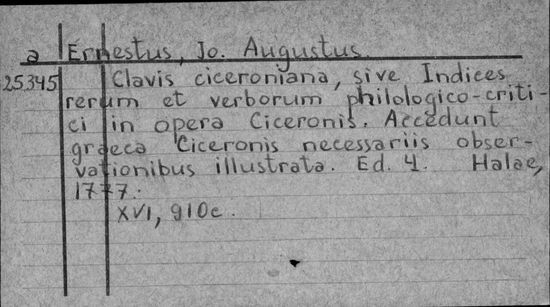 a Ernestus, Jo. Augustus.
25345 Clavis ciceroniana, sive Indices
rerum et verborum philologico-criti-
ci in opera Ciceronis. Accedunt
graeca Ciceronis necessariis obser-
vationibus illustrata. Ed. 4. Halae,
1777.
XVI, 910c.